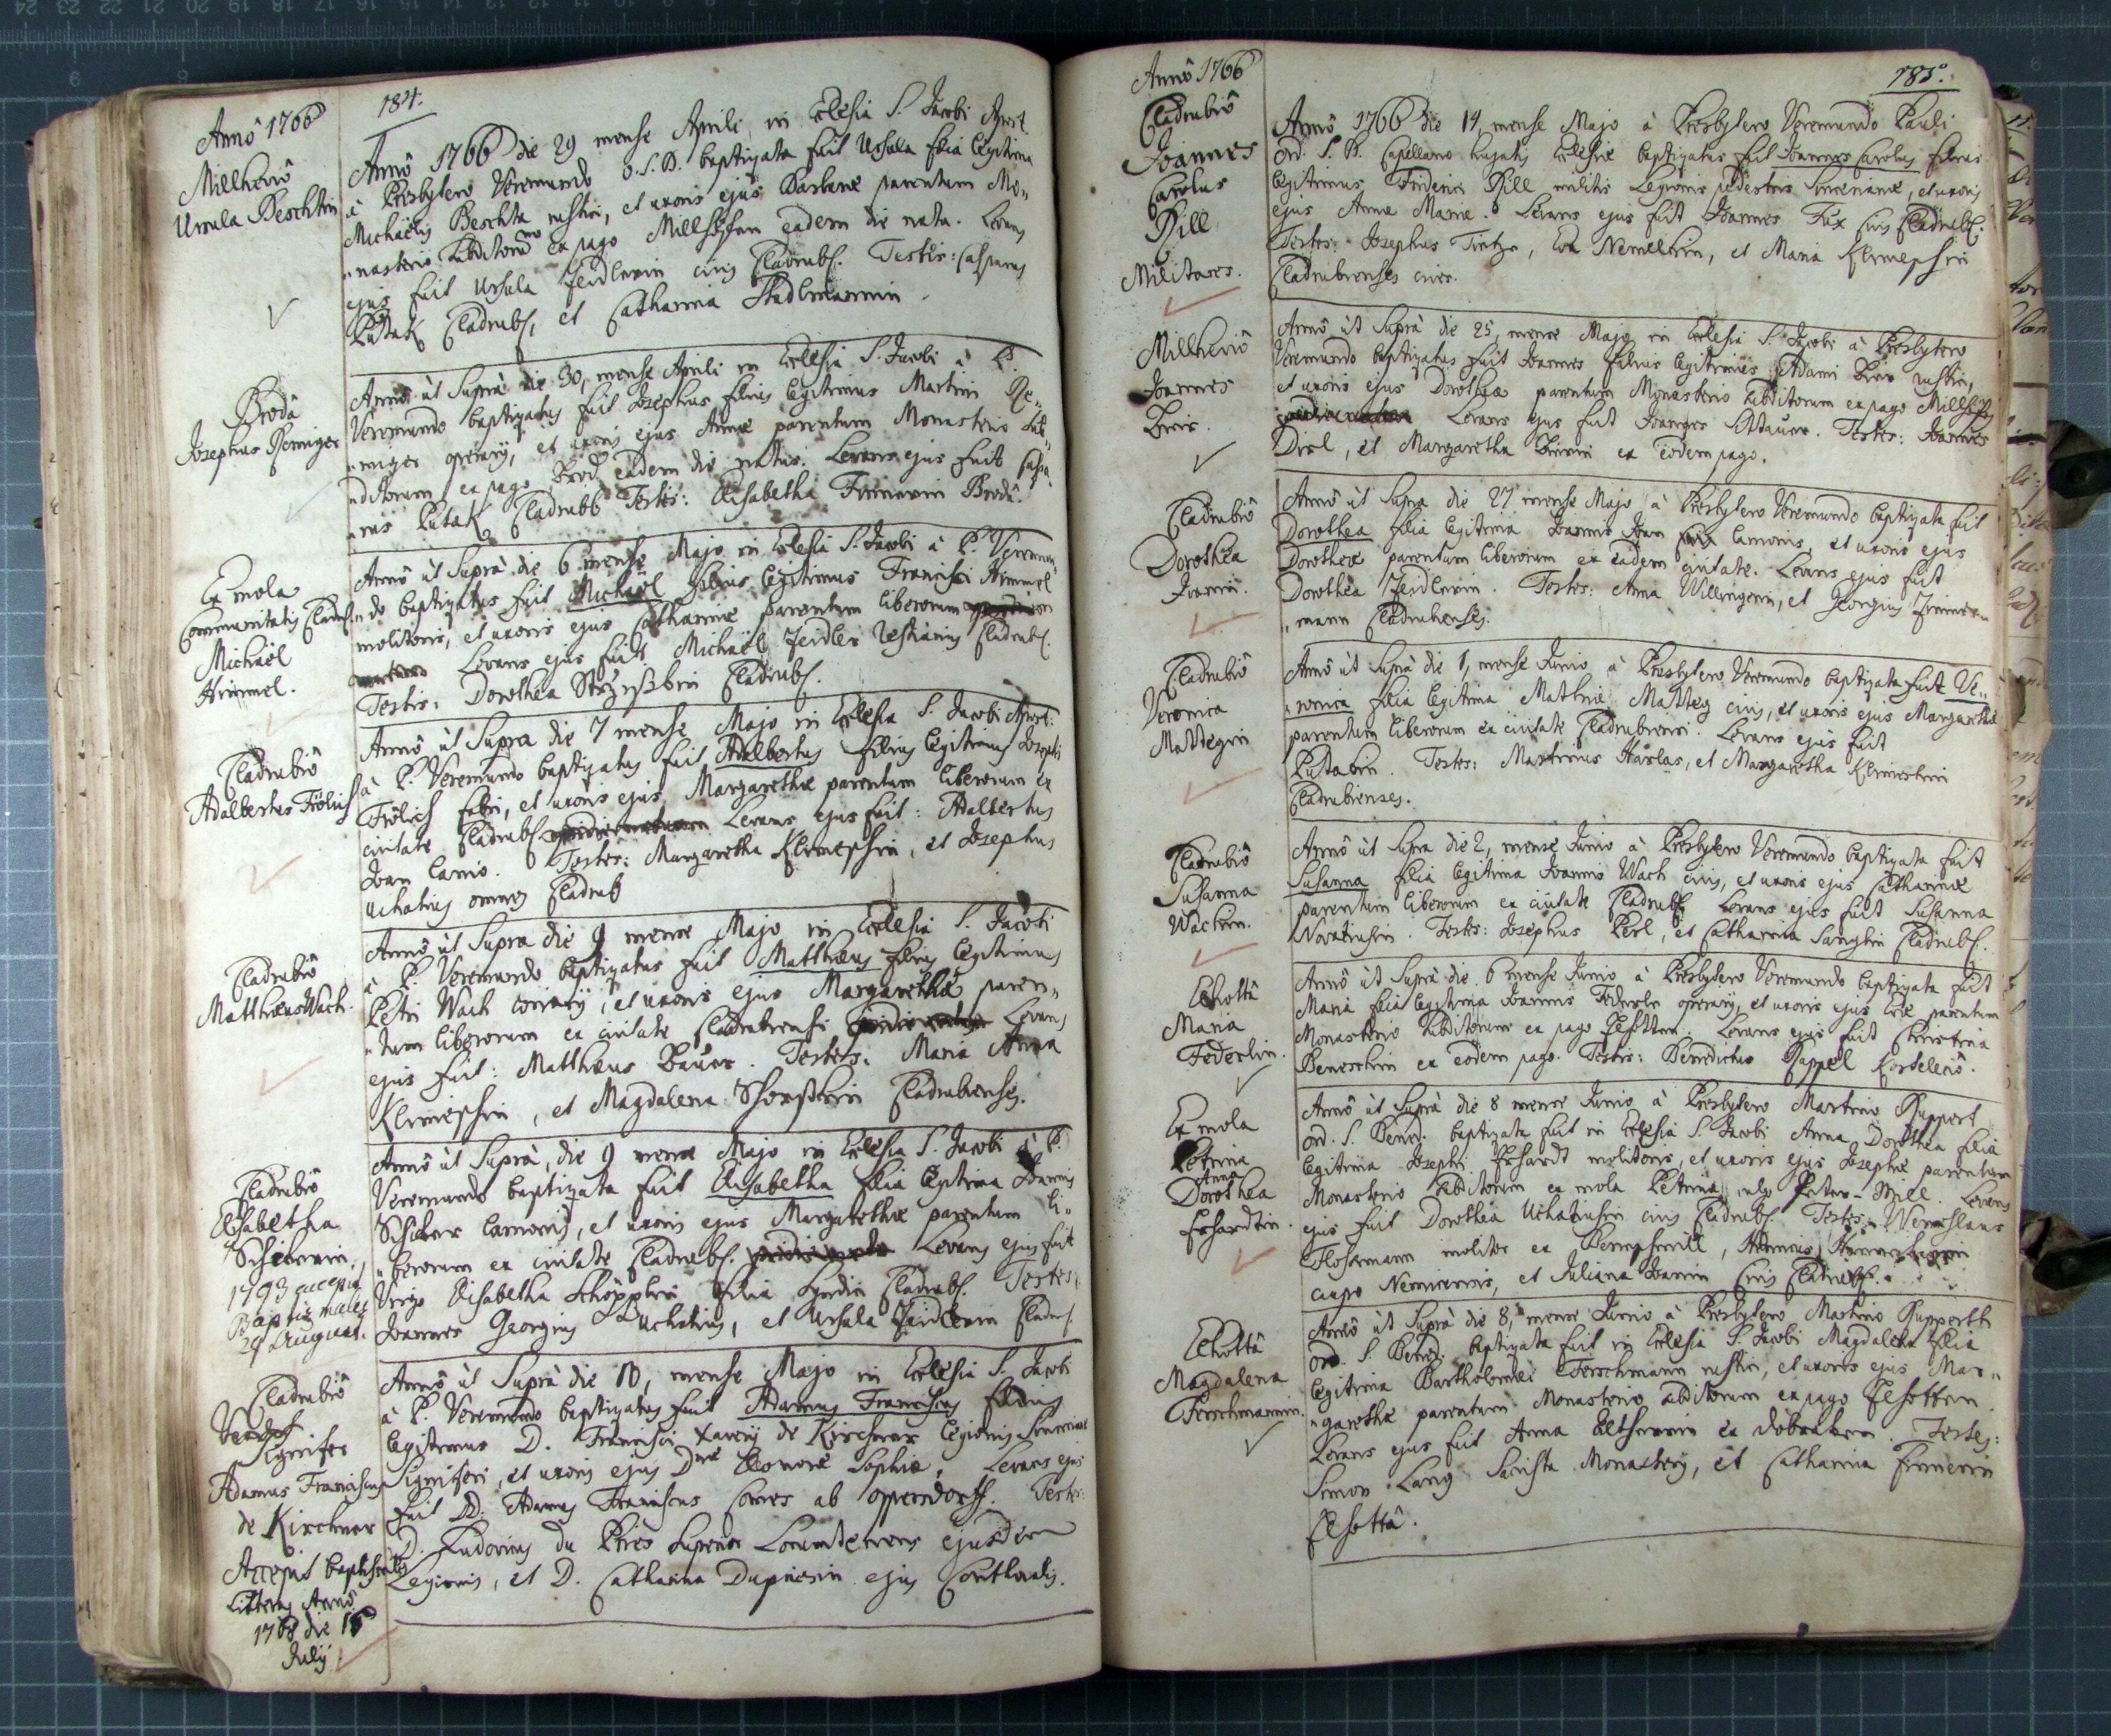 Anno 1766
184.
Millhovio
Ursula Beschtin
Anno 1766 die 29 mense Aprili, in Eclesia S. Jacobi Apost.
à Presbytero Veremundo O.S.B. baptizata fuit Ursula filia legitima
Michaëlis Beschta rustici, et uxoris ejus Barbaræ parentum Mo„
„nasterio subditorum ex pago eadem die nata. Levans
ejus fuit Ursula Zeidlerin civis Cladrub. Testis: Casparus
Putak Cladrub, et Catharina Stadlmannin.
Brodâ
Josephus Remiger
Anno ùt Suprà die 30, mense Aprili in Eclesia S. Jacobi à P.
Veremundo baptizatus fuit Josephus filius legitimus Martini Re„
„miger operarij, et uxoris ejus Annæ parentum Monasterio sub„
„ditorum ex pago Brod eadem die natus. Levans ejus fuit Caspa„
„rus Putak Cladrub Testis: Elisabetha Brodâ.
Ex mola
Communitatis Cladrub.
Michaël
Himmel.
Anno ùt Suprà die 6 mense Majo in Eclesia S. Jacobi à P. Veremun„
„do baptizatus fuit Michaël filius legitimus Francisci Himmel
molitoris, et uxoris ejus Catharinæ parentum liberorum
Levans ejus fuit Michaël Zeidler Cladrub.
Testis: Dorothea Cladrub.
Cladrubio
Adalbertus Frölich
Anno ùt Supra die 7 mense Majo in Eclesia S. Jacobi Apost:
à P. Veremundo baptizatus fuit Adalbertus filius legitimus Josephi
Frölich fabri, et uxoris ejus Margarethæ parentum liberorum ex
civitate Cladrub. Levans ejus fuit: Adalbertus
Joan lanio. Testes: Margaretha Klimeschin, et Josephus
Uchatius omnes Cladrub
Cladrubio
Matthæus Wach.
Anno ùt Supra die 9 mense Majo in Eclesia S. Jacobi
à P. Veremundo baptizatus fuit Matthæus filius legitimus
Petri Wach coriarij, et uxoris ejus Margarethæ paren„
„tum liberorum ex civitate Cladrubensi Levans
ejus fuit: Matthæus Bauer. Testes: Maria Anna
Klimeschin, et Magdalena Cladrubenses.
Cladrubio
Elisabetha
1793 accepit
Baptismales
29 August.
Anno ùt Suprà, die 9 mense Majo in Eclesia S. Jacobi à P.
Veremundo baptizata fuit Elisabetha filia legitima Joannis
lanionis, et uxoris ejus Margarethæ parentum li„
„berorum ex civitate Cladrub. Levans ejus fuit
Virgo Elisabetha filia Syndici Cladrub. Testes:
Joannes Georgius Uchatius, et Ursula Zeidlerin Cladrub.
Cladrubio
Signifer
Adamus Franciscus
de Kirchner
Accepit baptismales
Litteras Anno
1768 die 15
Julij
Anno ùt Suprà die 10, mense Majo in Eclesia S. Jacobi
à P. Veremundo baptizatus fuit Adamus Franciscus filius
legitimus D. Francisci Xaverij de Kirchner Legionis
Signiferi, et uxoris ejus Dnæ Eleonoræ Sophiæ. Levans ejus
fuit D: Adamus Franciscus Comes ab Oppersdorff. Testes:
D. Ludovicus du Pires Supremus Locumtenens ejusdem
Legionis, et D. Catharina ejus Conthoralis.
Anno 1766
185.
Cladrubio
Joannes
Carolus
Hill
Militares.
Anno 1766 die 14, mense Majo à Presbytero Veremundo Pauli
Ord. S. B. Capellano hujatis Eclesiæ baptizatus fuit Joannes Carolus filius
legitimus Friderici Hill militis Legionis pedestris et uxoris
ejus Annæ Mariæ. Levans ejus fuit Joannes Fux civis Cladrub.
Testes: Josephus Tietze, Eva et Maria Klimeschin
Cladrubienses cives.
Millhovio
Joannes
Anno ùt Suprà die 25, mense Majo in Eclesia S. Jacobi à Presbytero
Veremundo baptizatus fuit Joannes filius legitimus Adami rustici,
et uxoris ejus Dorotheæ parentum Monasterio subditorum ex pago
Levans ejus fuit Joannes Testes: Joannes
et Margaretha ex eodem pago.
Cladrubio
Dorothea
Joanin.
Anno ùt Supra die 27 mense Majo à Presbytero Veremundo baptizata fuit
Dorothea filia legitima Joannis Joan lanionis, et uxoris ejus
Dorotheæ parentum liberorum ex eadem civitate. Levans ejus fuit
Dorothea Zeidlerin. Testes: Anna Willingerin, et Georgius Zimmer„
„mann Cladrubenses.
Cladrubio
Veronica
Mattegin
Anno ùt Suprà die 1, mense Junio à Presbytero Veremundo baptizata fuit Ve„
„ronica filia legitima Mathiæ Matteg civis, et uxoris ejus Margarethæ
parentum liberorum ex civitate Cladrubensi. Levans ejus fuit
Putakin. Testes: Martinus Harlas, et Margaretha Klimeschin
Cladrubienses.
Cladrubio
Susanna
Wachin.
Anno ùt Supra die 2, mense Junio à Presbytero Veremundo baptizata fuit
Susanna filia legitima Joannis Wach civis, et uxoris ejus Catharinæ
parentum liberorum ex civitate Cladrub. Levans ejus fuit Susanna
Testes: Josephus et Catharina Cladrub.
Elhottâ
Maria
Federlin.
Anno ùt Suprà die 6 mense Junio à Presbytero Veremundo baptizata fuit
Maria filia legitima Joannis Federle operarij, et uxoris ejus Evæ parentum
Monasterio subditorum ex pago Elhotten. Levans ejus fuit Christina
Beneschin ex eodem pago. Testis: Benedictus Pappel
Ex mola
Petrina
Anna
Dorothea
Erhardtin.
Anno ùt Suprà die 8 mense Junio à Presbytero Martino Ruppert
Ord. S. Bened. baptizata fuit in Eclesia S. Jacobi Anna Dorothea filia
legitima Josephi Erhardt molitoris, et uxoris ejus Josephæ parentum
Monasterio subditorum ex mola Petrina, vulgo Peter-Mill. Levans
ejus fuit Dorothea Uchatiusin civis Cladrub. Testes: Wenceslaus
molitor ex
et Juliana Joanin civis Cladrub.
Elhottâ
Magdalena
Ferschmannin.
Anno ùt Suprà die 8, mense Junio à Presbytero Martino Ruppertt
Ord. S. Bened. baptizata fuit in Eclesia S. Jacobi Magdalena filia
legitima Bartholomæi Ferschmann rustici, et uxoris ejus Mar„
„garethæ parentum Monasterio subditorum ex pago Elhotten.
Levans ejus fuit Anna ex Dobraken. Testes:
Simon Lang Monasterij, et Catharina
Elhottâ.